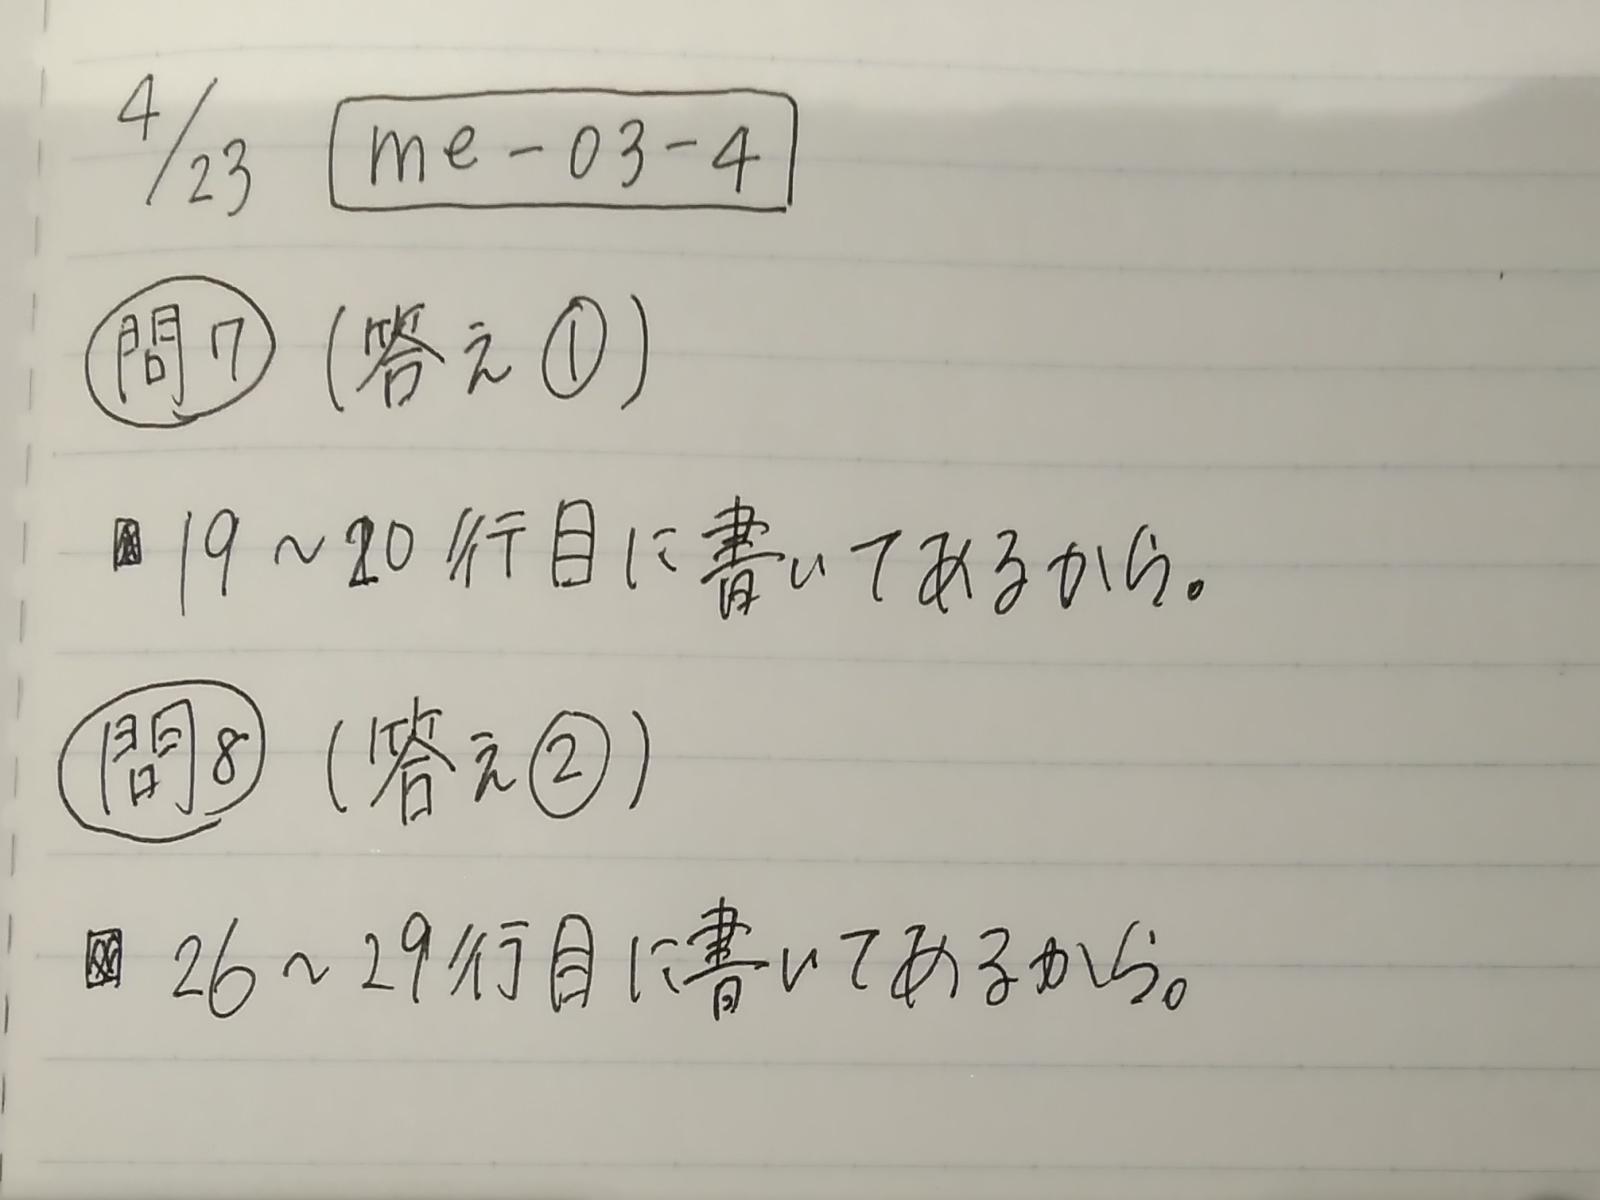 4/23 me-03-4
問7 (答え①)
19~20行目に書いてあるから。
問8 (答え②)
26~29行目に書いてあるから。